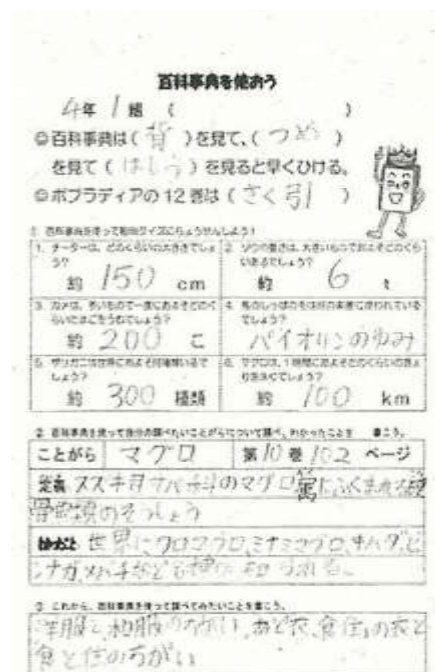 百科事典を使おう
4年 1組 ( )
◎百科事典は( 背 )を見て、( つめ )
を見て( はしら )を見ると早くひける。
◎ポプラディアの12巻は( さく引 )
① 百科事典を使って動物クイズにちょうせんしよう!
1. チーターは、どのくらいの大きさでしょ
う?
約 150 cm
2. ゾウの重さは、大きいものでおよそどのくら
いあるでしょう?
約 6 t
3. カメは、多いもので一度におよそどのく
らいたまごをうむでしょう?
約 200 こ
4. 馬のしっぽの毛は何の楽器に使われている
でしょう?
バイオリンのゆみ
5. ザリガニは世界におよそ何種類いるで
しょう?
約 300 種類
6. マグロは、1時間におよそどのくらいのきょ
りを泳ぐでしょう?
約 100 km
② 百科事典を使って自分の調べたいことがらについて調べ、わかったことを 書こう。
ことがら マグロ 第10巻 102 ページ
定義 スズキ目サバ科のマグロ属にふくまれる硬
骨魚類のそうしょう
世界にクロマグロ、ミナミマグロ、キハダ、ビ
ンナガ、メバチなど
③ これから、百科事典を使って調べてみたいことを書こう。
洋服と和服のちがい、あと衣、食住の衣と
食と住のちがい